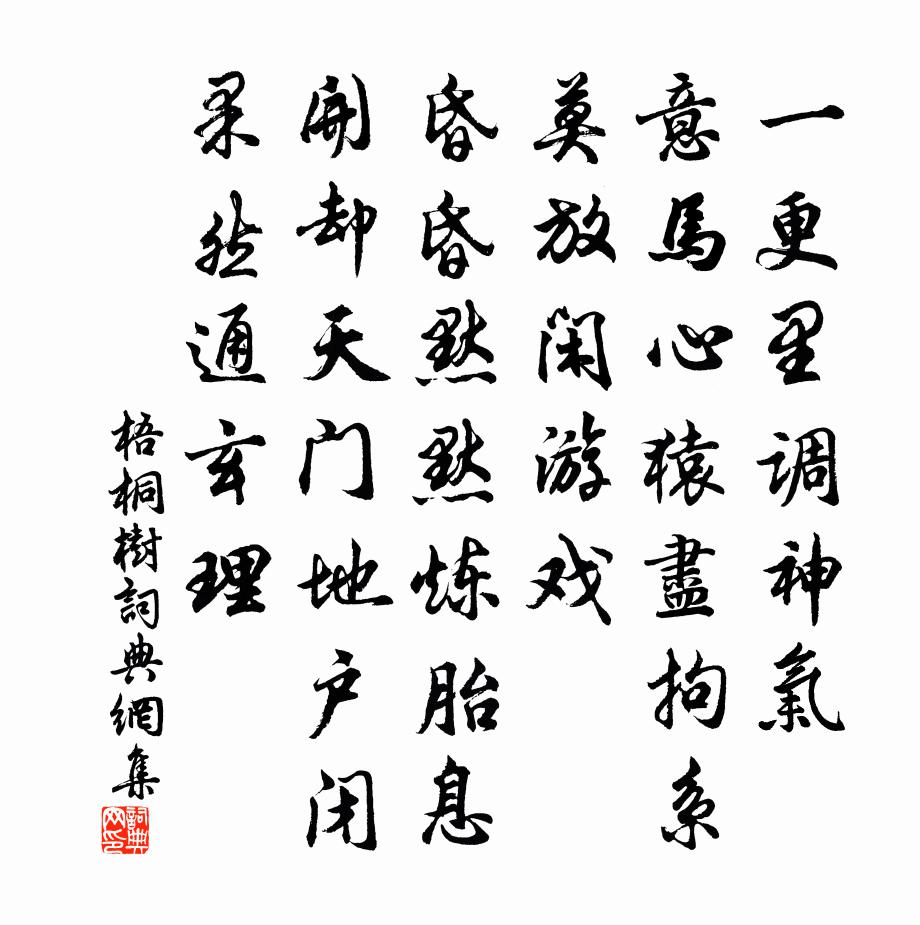 一更里调神氣
意馬心猿盡拘系
莫放闲游戏
昏昏默默炼胎息
開却天门地户闭
果然通玄理
梧桐樹詞典網集
詞典网印